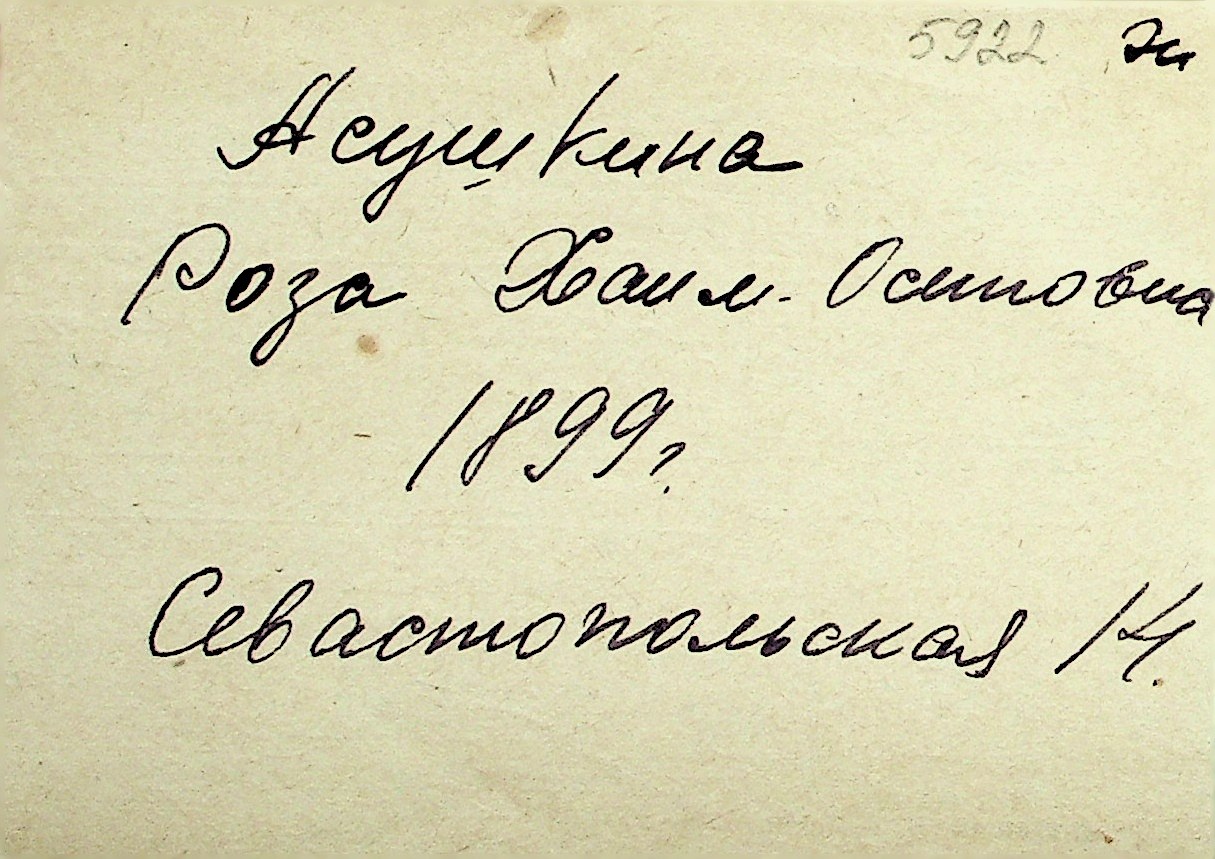 5922 Ж
Асушкина
Роза Хаим-Осиповна
1899г.
Севастопольская 14.